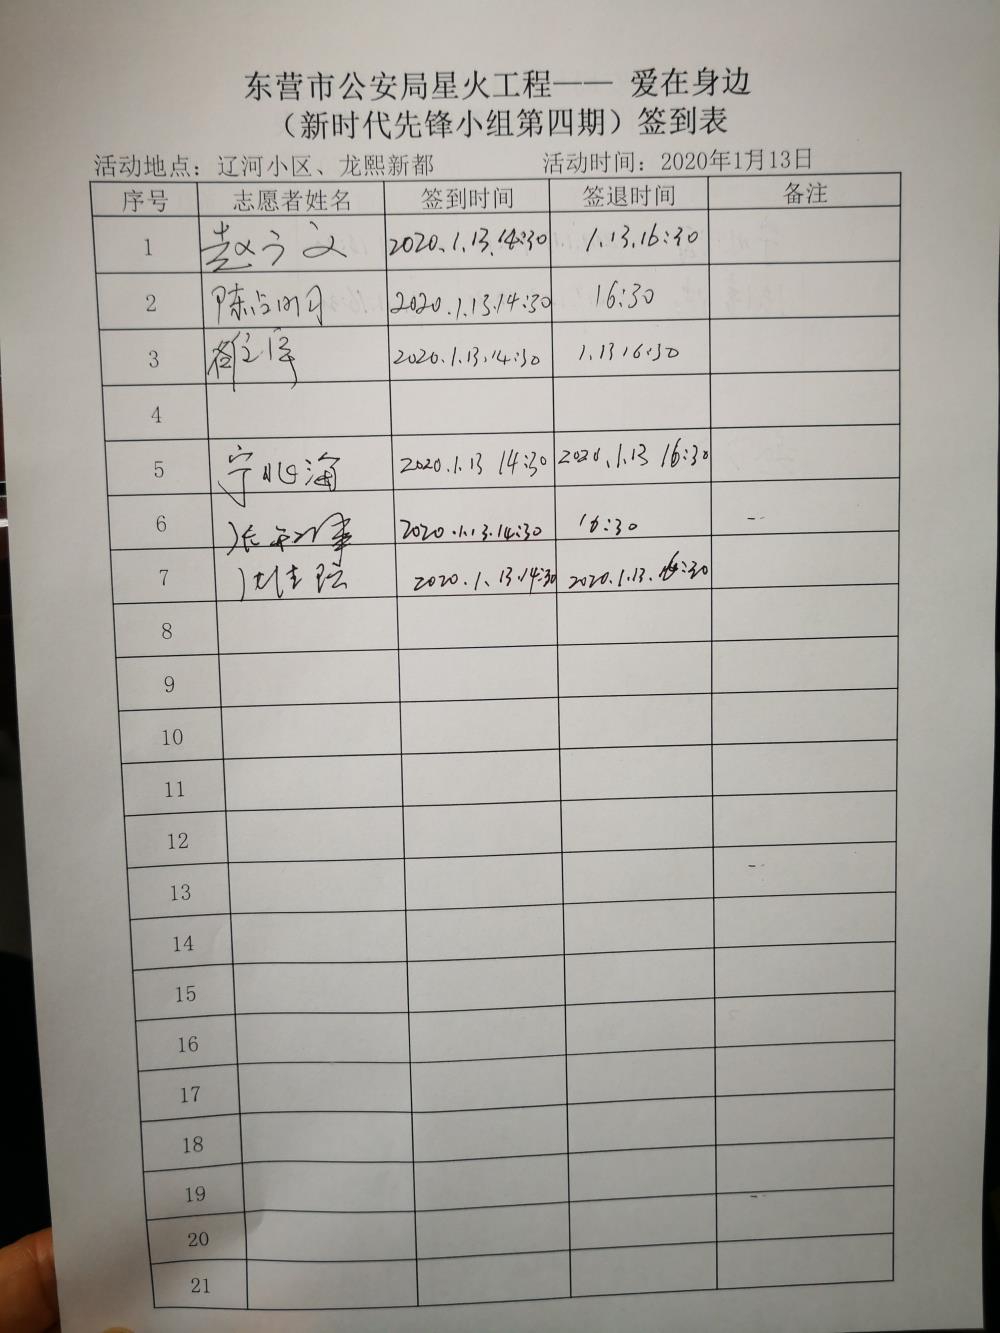 东营市公安局星火工程—— 爱在身边
（新时代先锋小组第四期）签到表
活动地点：辽河小区、龙熙新都 活动时间：2020年1月13日
序号 志愿者姓名 签到时间 签退时间 备注
1 赵方义 2020.1.13.14:30 1.13.16:30
2 2020.1.13.14:30 16:30
3 2020.1.13.14:30 1.13 16:30
4
5 宁 海 2020.1.13 14:30 2020.1.13 16:30
6 张 2020.1.13.14:30 16:30
7 2020.1.13.14:30 2020.1.13.16:30
8
9
10
11
12
13
14
15
16
17
18
19
20
21